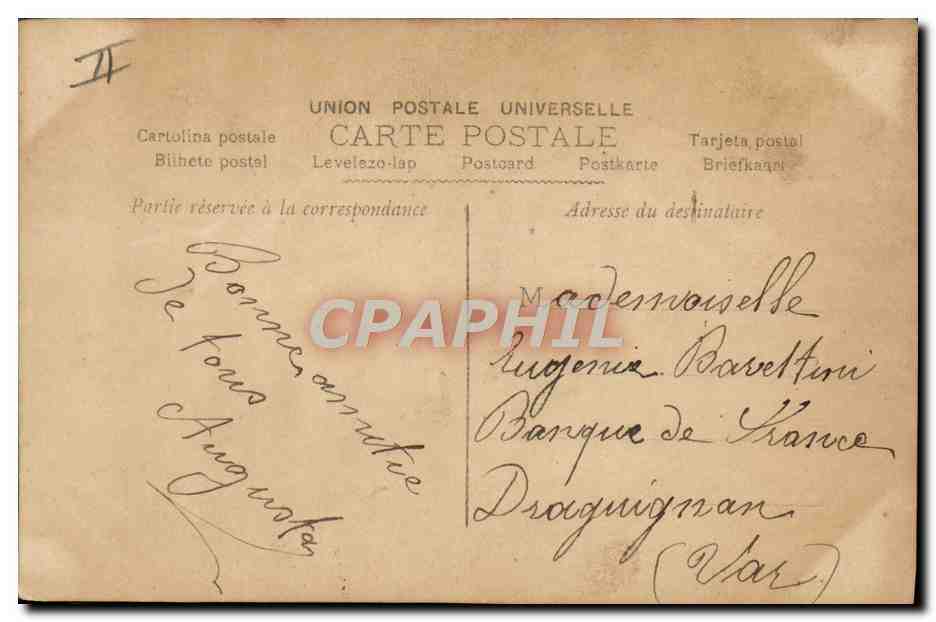 II
UNION POSTALE UNIVERSELLE
CARTE POSTALE
Cartolina postale
Tarjeta postal
Bilhete postal Levelezo-lap Postcard Postkarte Briefkaart
Partie réservée à la correspondance
Adresse du destinataire
Bonne amitie
De tous
Augusta
Mademoiselle
Eugenie Barettini
Banque de France
Draguignan
(Var)
CPAPHIL